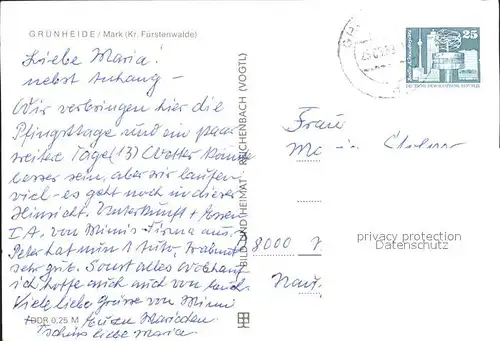 GRÜNHEIDE / Mark (Kr. Fürstenwalde)
Liebe Maria!
nebst Anhang –
Wir verbringen hier die
Pfingsttage und ein paar
weitere Tage (13) Wetter könnte
besser sein, aber wir laufen
viel – es geht noch in dieser
Hinsicht. Unterkunft + Essen
I A. von Mimis Firma aus.
Peter hat nun 1 Auto, Trabant
sehr gut. Sonst alles wohlauf
ich hoffe auch auch von Euch.
Viele liebe Grüsse von Mimi
Tschüss liebe Maria
DDR 0,25 M
BILD UND HEIMAT REICHENBACH (VOGTL)
25
DEUTSCHE DEMOKRATISCHE REPUBLIK
Frau
8000
privacy protection
Datenschutz